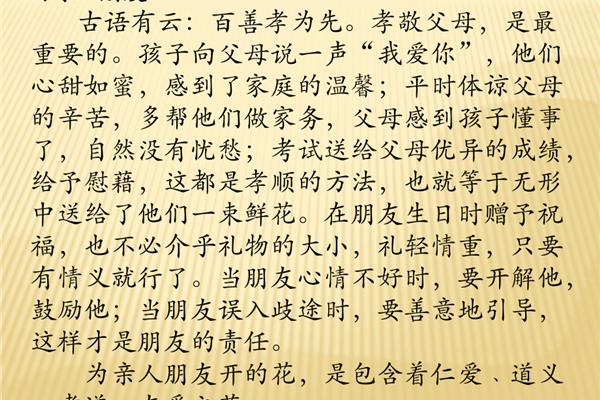 古语有云：百善孝为先。孝敬父母，是最
重要的。孩子向父母说一声“我爱你”，他们
心甜如蜜，感到了家庭的温馨；平时体谅父母
的辛苦，多帮他们做家务，父母感到孩子懂事
了，自然没有忧愁；考试送给父母优异的成绩，
给予慰藉，这都是孝顺的方法，也就等于无形
中送给了他们一束鲜花。在朋友生日时赠予祝
福，也不必介乎礼物的大小，礼轻情重，只要
有情义就行了。当朋友心情不好时，要开解他，
鼓励他；当朋友误入歧途时，要善意地引导，
这样才是朋友的责任。
为亲人朋友开的花，是包含着仁爱、道义